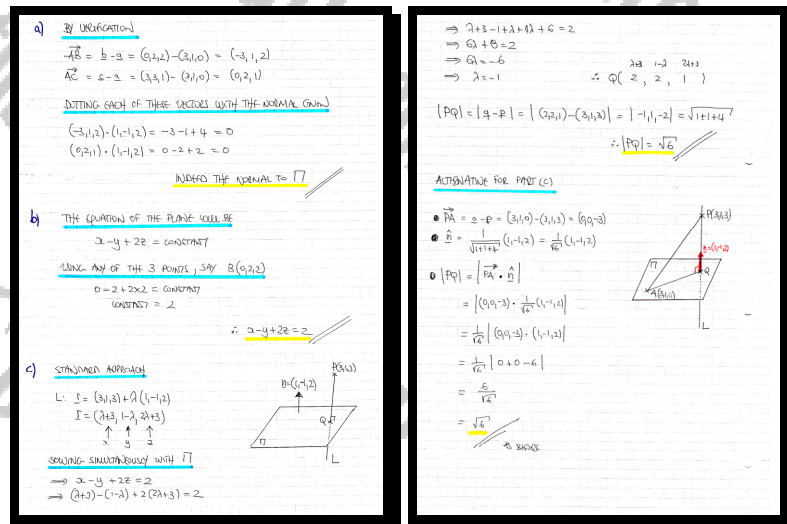 a) BY VERIFICATION
AB = b - a = (0,2,2)-(3,1,0) = (-3,1,2)
AC = c - a = (3,3,1)-(3,1,0) = (0,2,1)
DOTTING EACH OF THESE VECTORS WITH THE NORMAL GIVEN
(-3,1,2)·(1,-1,2) = -3-1+4 = 0
(0,2,1)·(1,-1,2) = 0-2+2 = 0
INDEED THE NORMAL TO Π
b) THE EQUATION OF THE PLANE WILL BE
x-y+2z = CONSTANT
USING ANY OF THE 3 POINTS, SAY B(0,2,2)
0-2+2x2 = CONSTANT
CONSTANT = 2
∴ x-y+2z=2
c) STANDARD APPROACH
L: r = (3,1,3)+λ(1,-1,2)
r = (λ+3, 1-λ, 2λ+3)
x y z
P(3,1,3)
n=(1,-1,2)
Q
Π
L
SOLVING SIMULTANEOUSLY WITH Π
⇒ x-y+2z=2
⇒ (λ+3)-(1-λ)+2(2λ+3)=2
⇒ λ+3-1+λ+4λ+6=2
⇒ 6λ+8=2
⇒ 6λ=-6
⇒ λ=-1
λ+3 1-λ 2λ+3
∴ Q(2, 2, 1)
|PQ| = |q-p| = |(2,2,1)-(3,1,3)| = |-1,1,-2| = √1+1+4
∴ |PQ| = √6
ALTERNATIVE FOR PART (C)
• PA = a-p = (3,1,0)-(3,1,3) = (0,0,-3)
• n̂ = 1/√1+1+4 (1,-1,2) = 1/√6 (1,-1,2)
• |PQ| = |PA · n̂|
= |(0,0,-3)· 1/√6 (1,-1,2)|
= 1/√6 |(0,0,-3)·(1,-1,2)|
= 1/√6 |0+0-6|
= 6/√6
= √6
AS BEFORE
P(3,1,3)
n=(1,-1,2)
Π
Q
A(3,1,0)
L